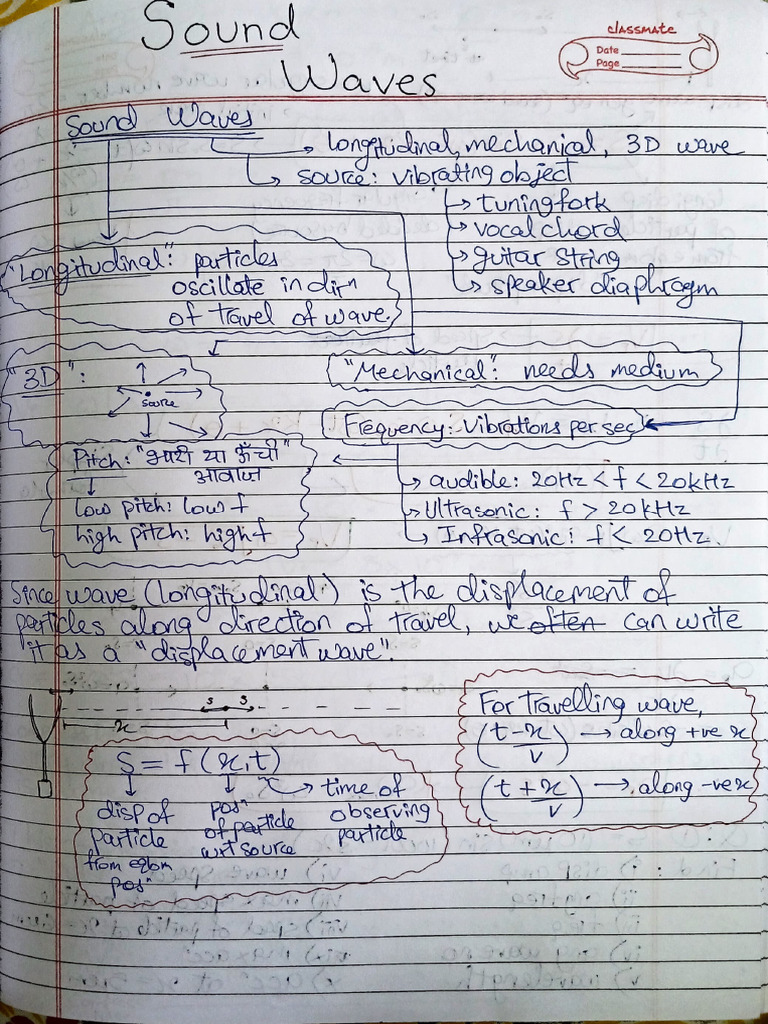 Sound
Waves
classmate
Date
Page
Sound Waves
longitudinal, mechanical, 3D wave
source: vibrating object
tuning fork
vocal chord
guitar string
speaker diaphragm
"Longitudinal": particles
oscillate in dirn
of travel of wave.
"3D":
source
"Mechanical": needs medium
Frequency: Vibrations per sec
audible: 20Hz < f < 20kHz
Ultrasonic: f > 20kHz
Infrasonic: f < 20Hz.
Pitch: "भारी या ऊँची"
आवाज़
low pitch: low f
high pitch: high f
Since wave (longitudinal) is the displacement of
particles along direction of travel, we often can write
it as a "displacement wave".
s s
x
S = f(x,t)
disp of
particle
from eqbm
posn
posn
of particle
wrt source
time of
observing
particle
For travelling wave,
(t-x/v) → along +ve x
(t+x/v) → along -ve x